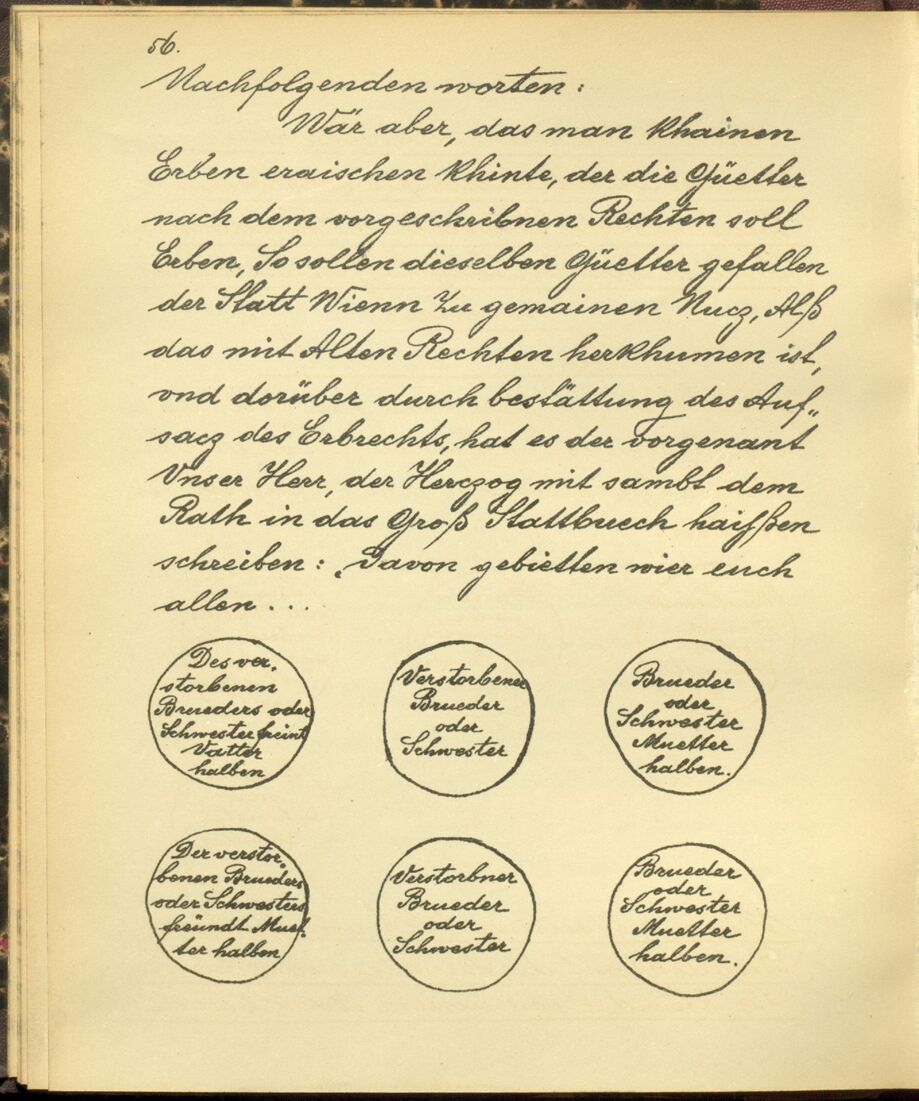 56.
Nachfolgenden worten:
Wär aber, das man Khainen
Erben eraischen Khinte, der die Güetter
nach dem vorgeschribnen Rechten soll
Erben, So sollen dieselben Güetter gefallen
der Statt Wienn Zu gemainen Nucz, Alß
das mit Alten Rechten herkhumen ist,
vnd dorüber durch bestättung des Auf„
sacz des Erbrechts, hat es der vorgenant
Vnser Herr, der Herczog mit sambt dem
Rath in das Groß Stattbuech haißen
schreiben: „Davon gebietten wier euch
allen...
Des ver.
storbenen
Brueders oder
Schwester freint
Vatter
halben
Verstorbener
Brueder
oder
Schwester
Brueder
oder
Schwester
Muetter
halben.
Der verstor„
benen Brueders
oder Schwesters
freündt Muet.
ter halben
Verstorbner
Brueder
oder
Schwester
Brueder
oder
Schwester
Muetter
halben.